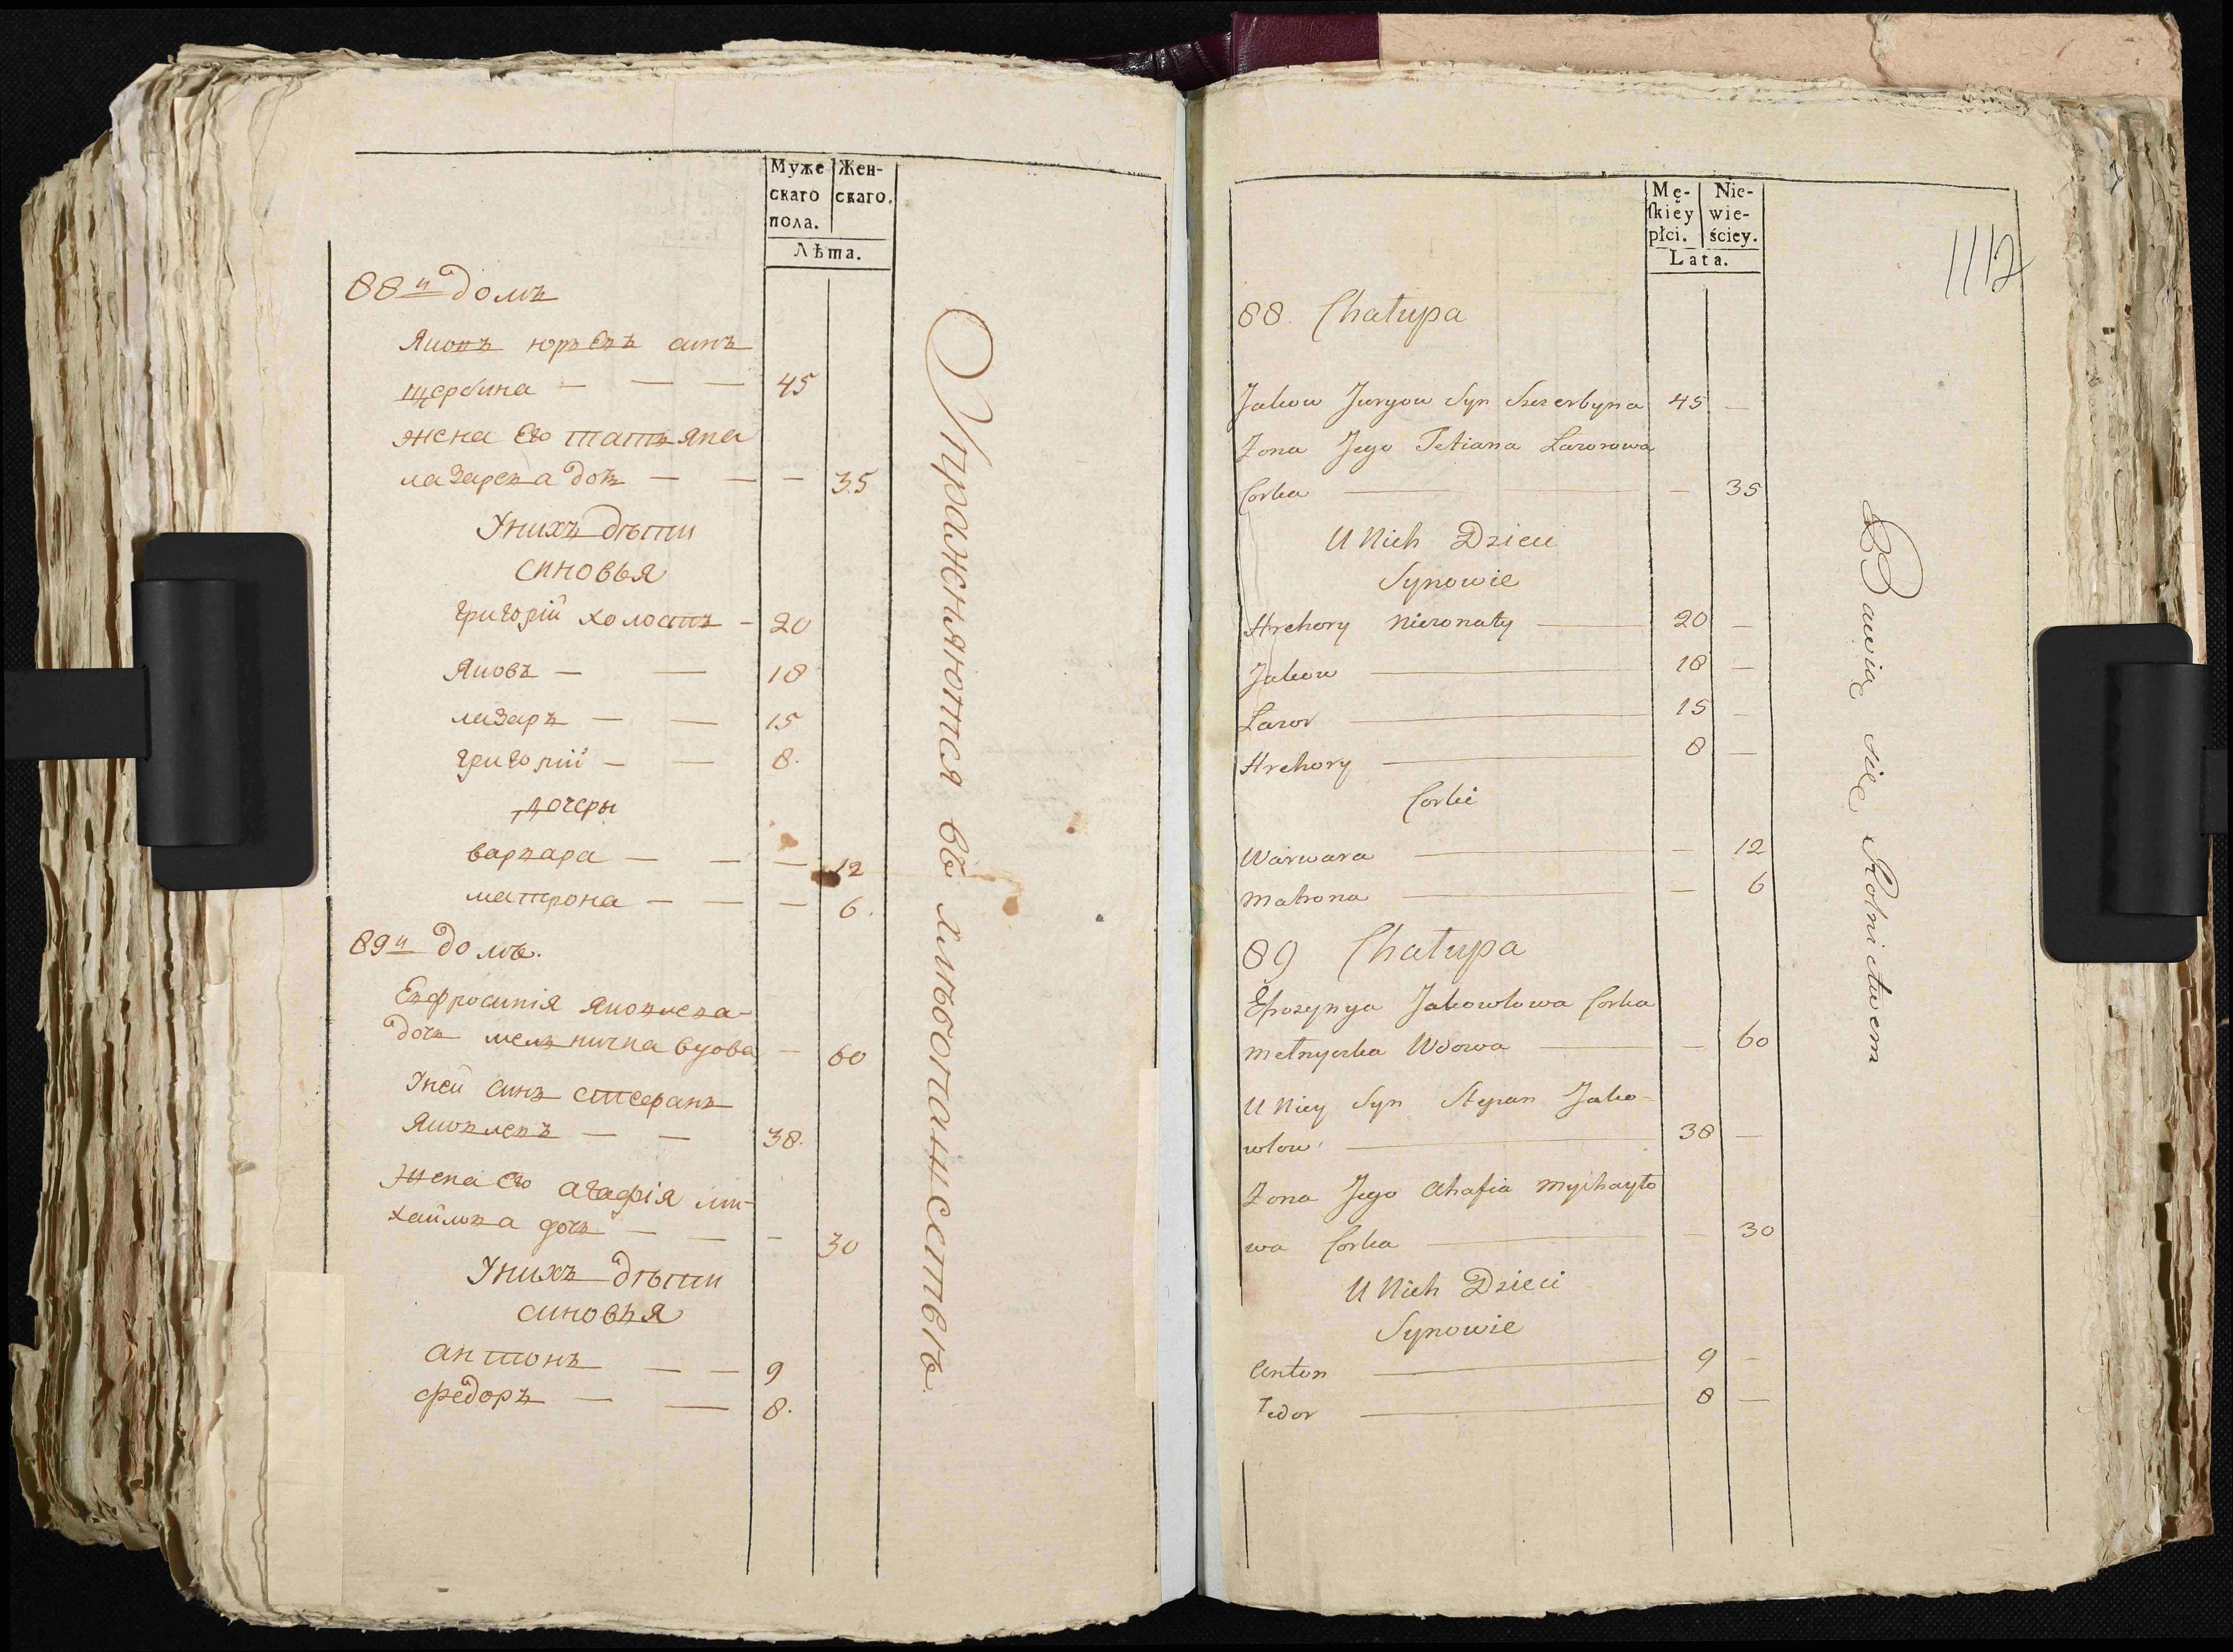 Муже Жен-
скаго скаго.
пола.
Лѣта.
88й домъ
Яковъ юрьевъ синъ
щербина — — — 45
жена его татьяна
лазарева дочь — — — 35
Унихъ дѣти
синовья
григорій холостъ — 20
Яковъ — — 18
лазаръ — — 15
григорій — — 8.
дочеры
варвара — — — 12
матрона — — — 6.
89й домъ.
Евфросинія Яковлева
дочь мельничка вдова — 60
Уней синъ стефанъ
Яковлевъ — — 38.
жена его агафія ми-
хайлова дочь — — — 30
Унихъ дѣти
синовья
антонъ — — 9
федоръ — — 8.
Упражняются въ хлѣбопашествѣ.
Mę- Nie-
skiéy wie-
płci. ściey.
Lata.
1112
88. Chałupa
Jakow Juryow Syn Szczerbyna 45 —
Zona Jego Tetiana Lazorowa
Corka — — 35
U Nich Dzieci
Synowie
Hrehory Niezonaty — 20 —
Jakow — 18 —
Lazor — 15 —
Hrehory — 8 —
Corki
Warwara — — 12
Matrona — — 6
89 Chałupa
Efrozynya Jakowlowa Corka
Melnyczka Wdowa — — 60
U Niey Syn Stepan Jako-
wlow — 38 —
Zona Jego Ahafia Mychayło
wa Corka — — 30
U Nich Dzieci
Synowie
Anton — 9 —
Fedor — 8 —
Bawią się Rolnictwem